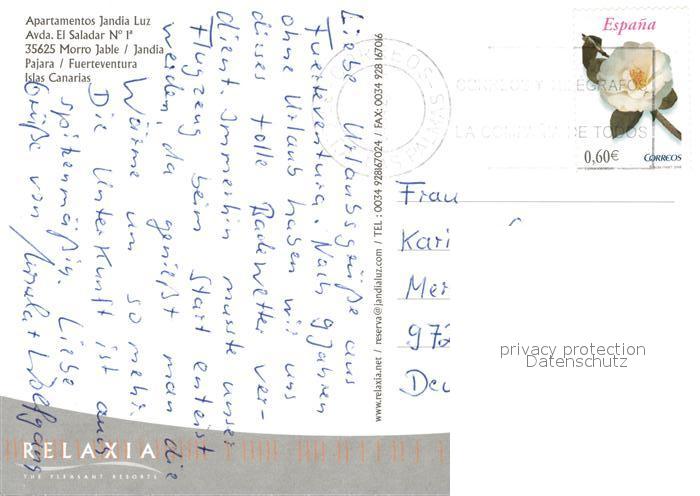 Apartamentos Jandia Luz
Avda. El Saladar Nº 1ª
35625 Morro Jable / Jandia
Pajara / Fuerteventura
Islas Canarias
Liebe Urlaubsgrüße aus
Fuerteventura. Nach 9 Jahren
ohne Urlaub haben wir uns
dieses tolle Badewetter ver-
dient. Immerhin musste unser
Flugzeug beim Start enteist
werden, da genießt man die
Wärme um so mehr.
Die Unterkunft ist auch
spitzenmäßig. Liebe
Grüße von Ursula + Wolfgang
www.relaxia.net / reserva@jandialuz.com / TEL : 0034 928167024 / FAX: 0034 928 167016
CORREOS
LAS PALMAS
CORREOS Y TELEGRAFOS
LA COMPAÑIA DE TODOS
España
0,60€
CORREOS
Frau
Kari
Mer
972
Deu
privacy protection
Datenschutz
RELAXIA
THE PLEASANT RESORTS